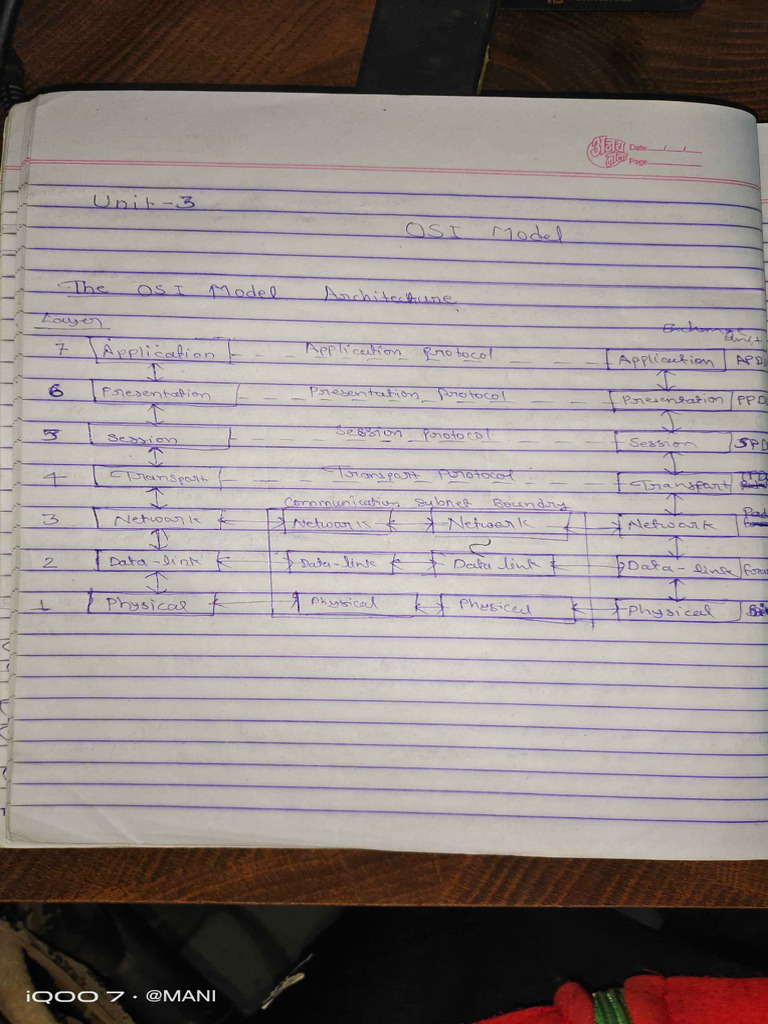 Date
Page
Unit-3
OSI Model
The OSI Model Architecture
Layer
Exchange
Unit
7 Application Application Protocol Application
6 Presentation Presentation Protocol Presentation
5 Session Session Protocol Session
4 Transport Transport Protocol Transport
Communication Subnet Boundry
3 Network Network Network Network
2 Data-link Data-link Data link Data-link
1 Physical Physical Physical Physical
iQOO 7 · @MANI